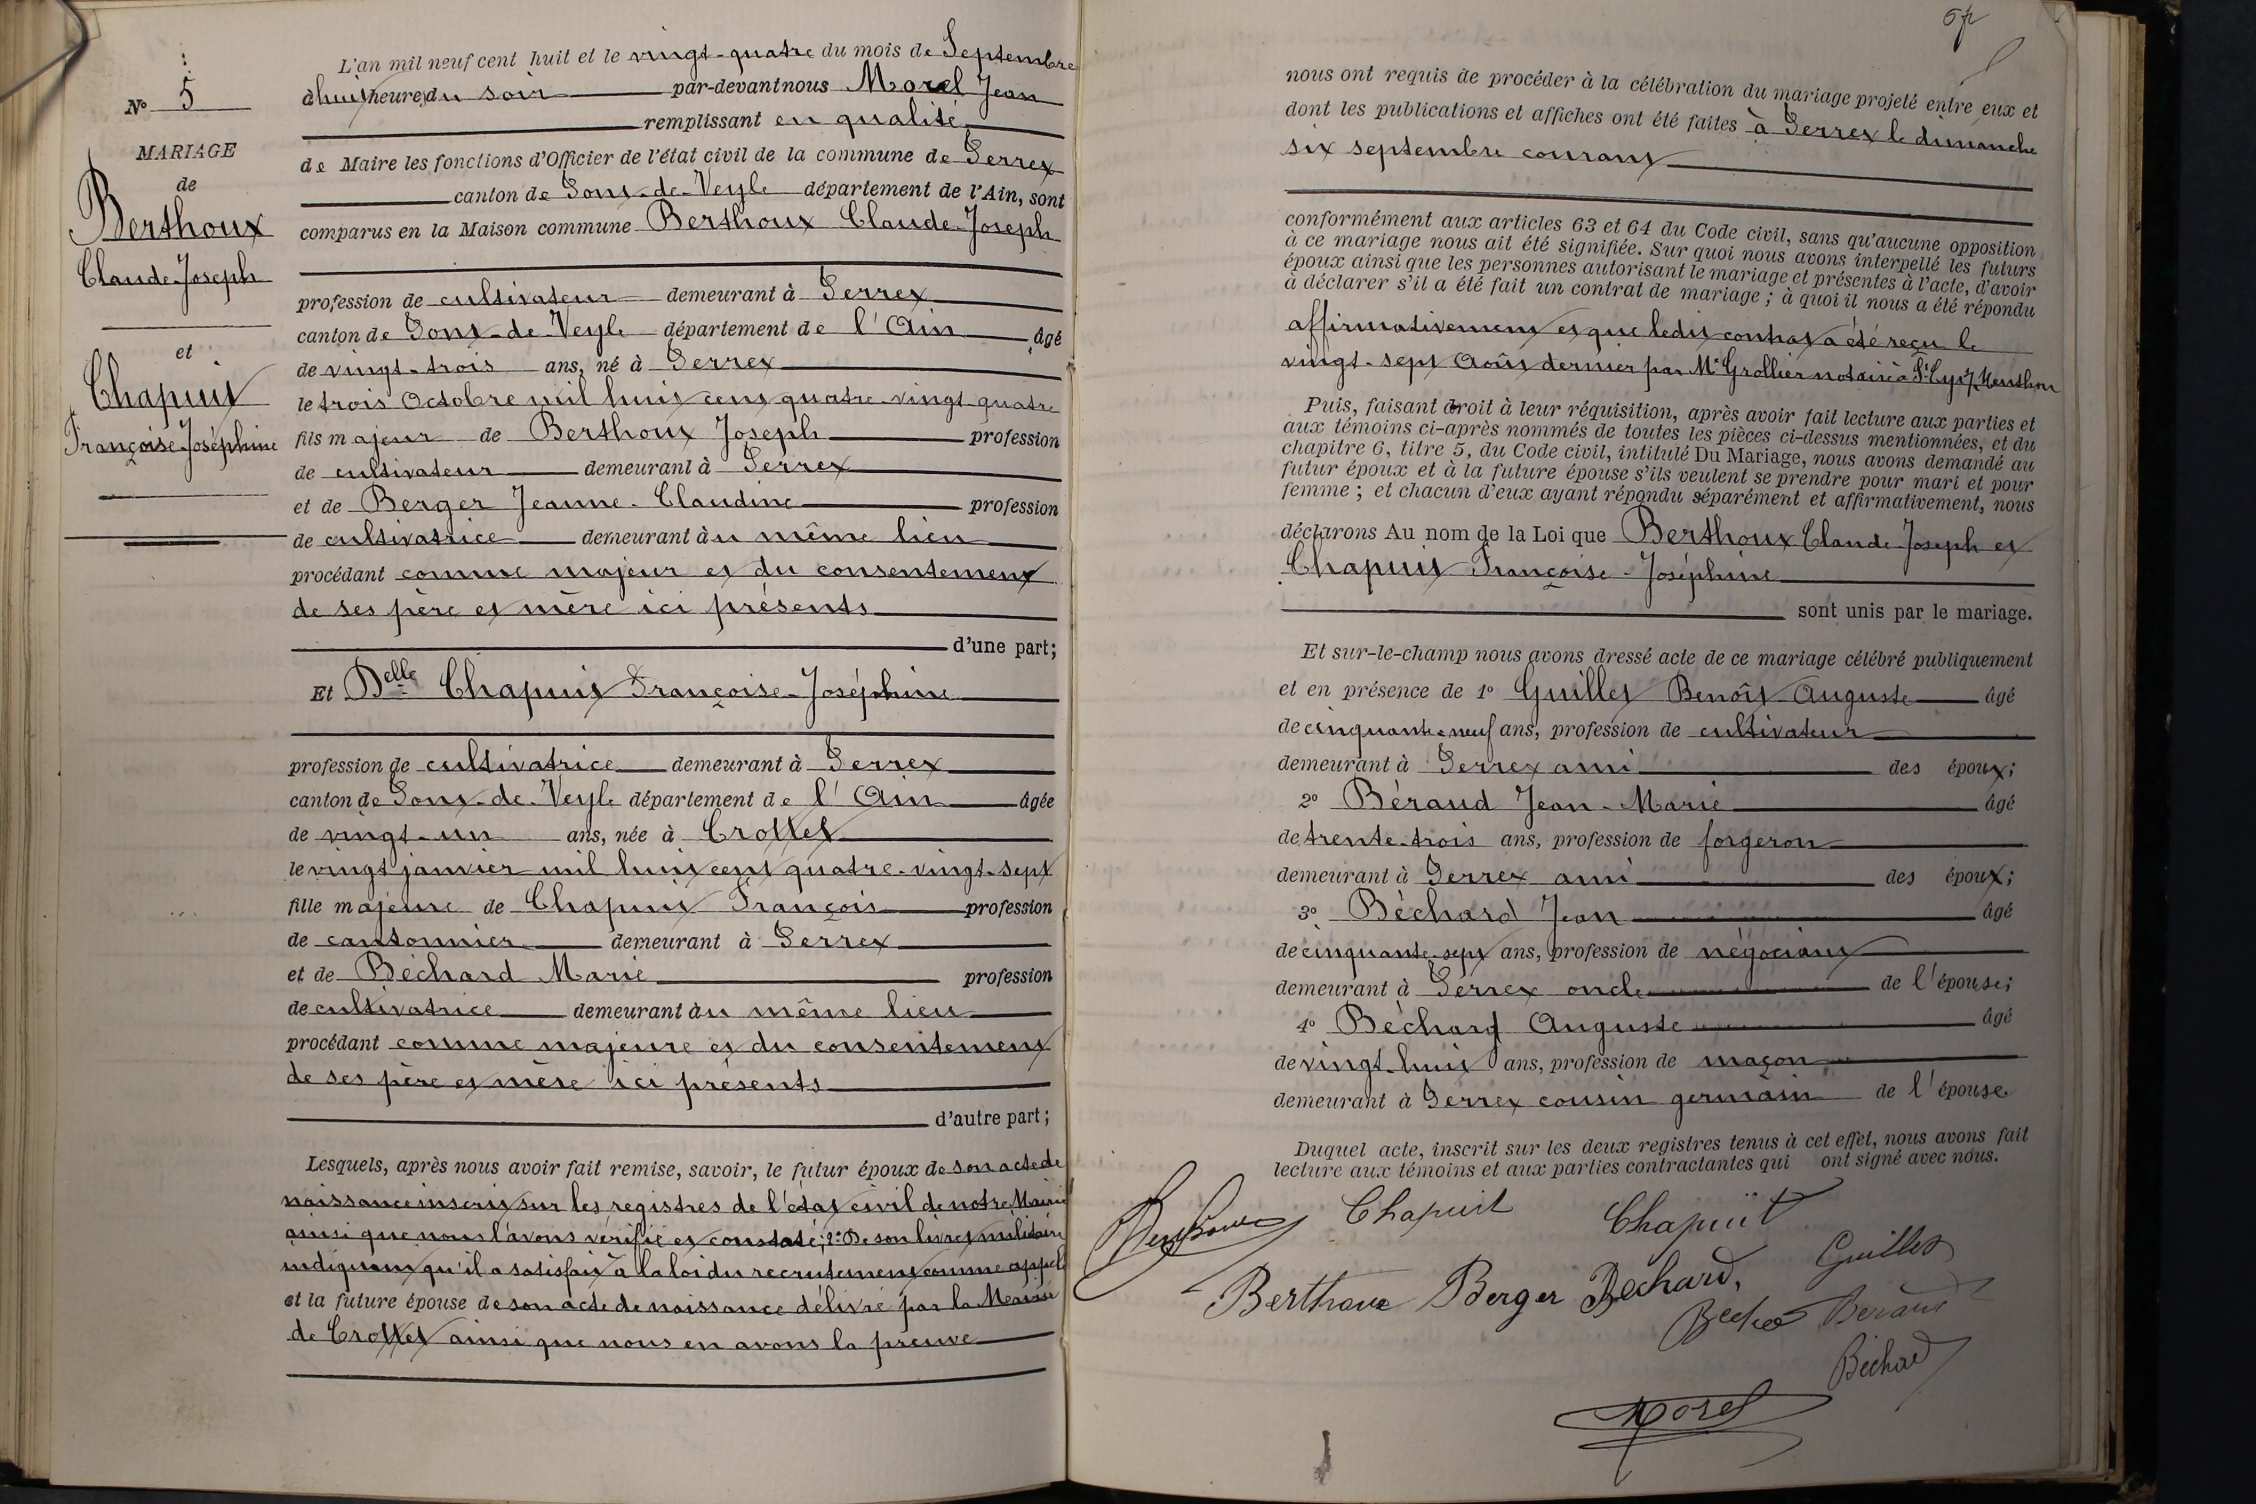 N° 5
MARIAGE
de
Berthoux
Claude-Joseph
et
Chapuit
Françoise-Joséphine
L'an mil neuf cent huit et le vingt-quatre du mois de Septembre
à huit heures du soir par-devant nous Morel Jean
remplissant en qualité
de Maire les fonctions d'Officier de l'état civil de la commune de Perrex
canton de Pont-de-Veyle département de l'Ain, sont
comparus en la Maison commune Berthoux Claude-Joseph
profession de cultivateur demeurant à Perrex
canton de Pont-de-Veyle département de l'Ain âgé
de vingt-trois ans, né à Perrex
le trois Octobre mil huit cent quatre-vingt-quatre
fils majeur de Berthoux Joseph profession
de cultivateur demeurant à Perrex
et de Berger Jeanne-Claudine profession
de cultivatrice demeurant au même lieu
procédant comme majeur et du consentement
de ses père et mère ici présents
d'une part;
Et Delle Chapuit Françoise-Joséphine
profession de cultivatrice demeurant à Perrex
canton de Pont-de-Veyle département de l'Ain âgée
de vingt-un ans, née à Crottet
le vingt janvier mil huit cent quatre-vingt-sept
fille majeure de Chapuit François profession
de cantonnier demeurant à Perrex
et de Béchard Marie profession
de cultivatrice demeurant au même lieu
procédant comme majeure et du consentement
de ses père et mère ici présents
d'autre part;
Lesquels, après nous avoir fait remise, savoir, le futur époux de son acte de
naissance inscrit sur les registres de l'état civil de notre Mairie
ainsi que nous l'avons vérifié et constaté; 2° De son livret militaire
indiquant qu'il a satisfait à la loi du recrutement comme appelé
et la future épouse de son acte de naissance délivré par la Mairie
de Crottet ainsi que nous en avons la preuve
nous ont requis de procéder à la célébration du mariage projeté entre eux et
dont les publications et affiches ont été faites à Perrex le dimanche
six septembre courant
conformément aux articles 63 et 64 du Code civil, sans qu'aucune opposition
à ce mariage nous ait été signifiée. Sur quoi nous avons interpellé les futurs
époux ainsi que les personnes autorisant le mariage et présentes à l'acte, d'avoir
à déclarer s'il a été fait un contrat de mariage; à quoi il nous a été répondu
affirmativement et que ledit contrat a été reçu le
vingt-sept Août dernier par Me Grollier notaire à St Cyr s/ Menthon
Puis, faisant droit à leur réquisition, après avoir fait lecture aux parties et
aux témoins ci-après nommés de toutes les pièces ci-dessus mentionnées, et du
chapitre 6, titre 5, du Code civil, intitulé Du Mariage, nous avons demandé au
futur époux et à la future épouse s'ils veulent se prendre pour mari et pour
femme; et chacun d'eux ayant répondu séparément et affirmativement, nous
déclarons Au nom de la Loi que Berthoux Claude-Joseph et
Chapuit Françoise-Joséphine
sont unis par le mariage.
Et sur-le-champ nous avons dressé acte de ce mariage célébré publiquement
et en présence de 1° Guillet Benoît-Auguste âgé
de cinquante-neuf ans, profession de cultivateur
demeurant à Perrex ami des époux;
2° Béraud Jean-Marie âgé
de trente-trois ans, profession de forgeron
demeurant à Perrex ami des époux;
3° Béchard Jean âgé
de cinquante-sept ans, profession de négociant
demeurant à Perrex oncle de l'épouse;
4° Béchard Auguste âgé
de vingt-huit ans, profession de maçon
demeurant à Perrex cousin germain de l'épouse
Duquel acte, inscrit sur les deux registres tenus à cet effet, nous avons fait
lecture aux témoins et aux parties contractantes qui ont signé avec nous.
Berthoux Chapuit Chapuit
Berthoux Berger Bechard, Guillet
Beraud
Béchard
Morel